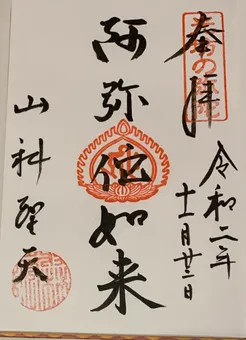 奉拝
令和二年
十一月廿三日
阿弥陀如来
山科聖天